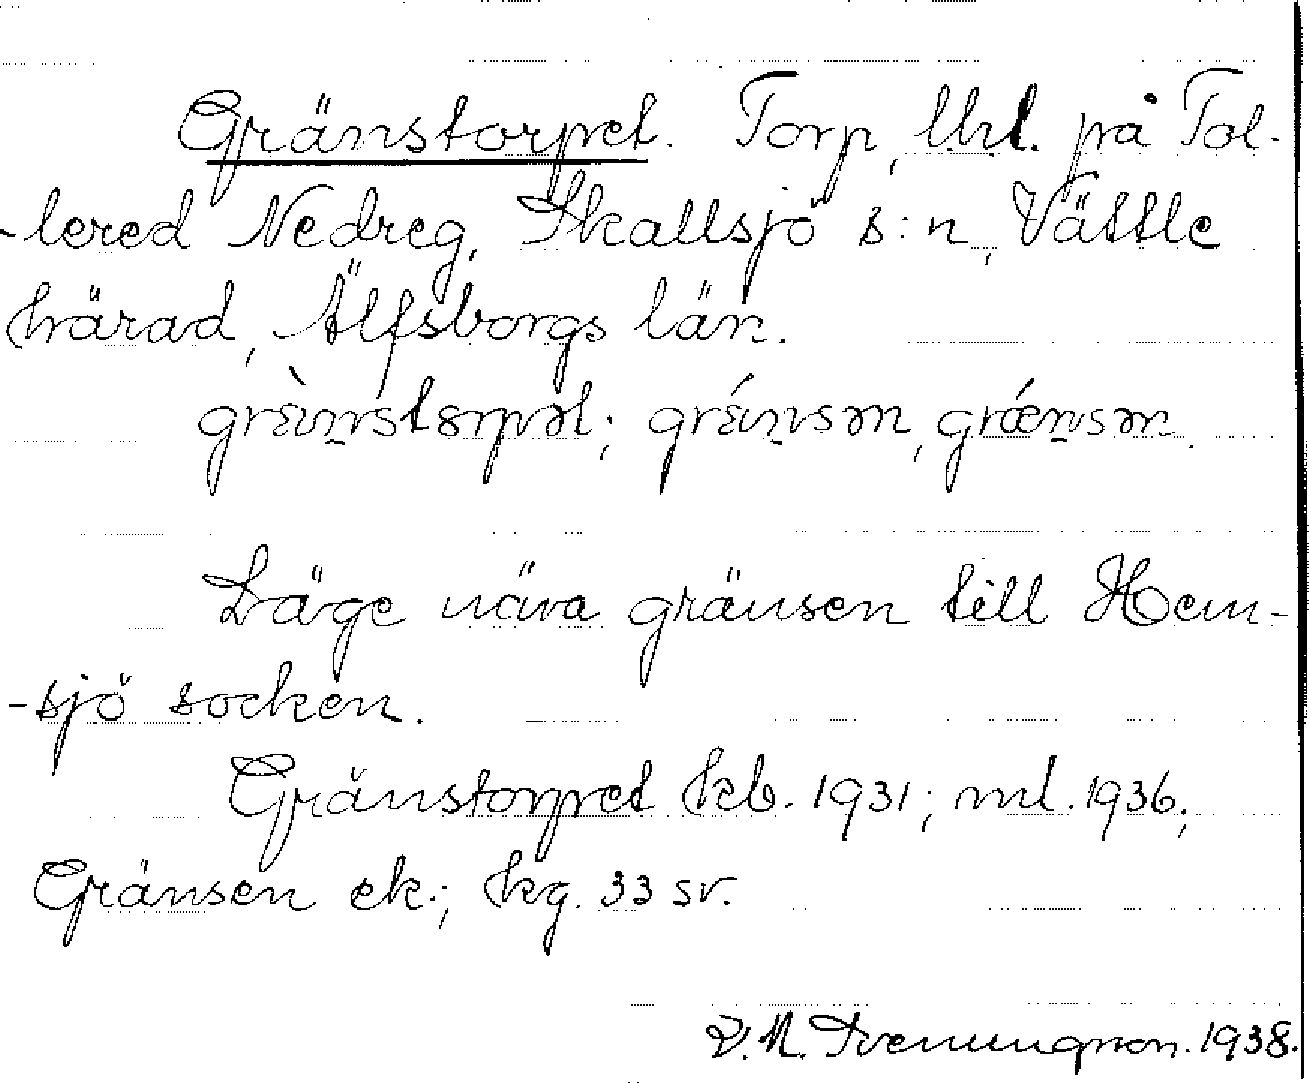 Gränstorpet. Torp, lht. på Tol-
-lered Nedreg, Skallsjö s:n, Vättle
härad, Älfsborgs län.
grɛ̀nstɔrpət; grɛ́nsən, grǽnsən.
Läge nära gränsen till Hem-
-sjö socken.
Gränstorpet kb. 1931; ml. 1936;
Gränsen ek.; kg. 33 sv.
V. M. Svenungson. 1938.